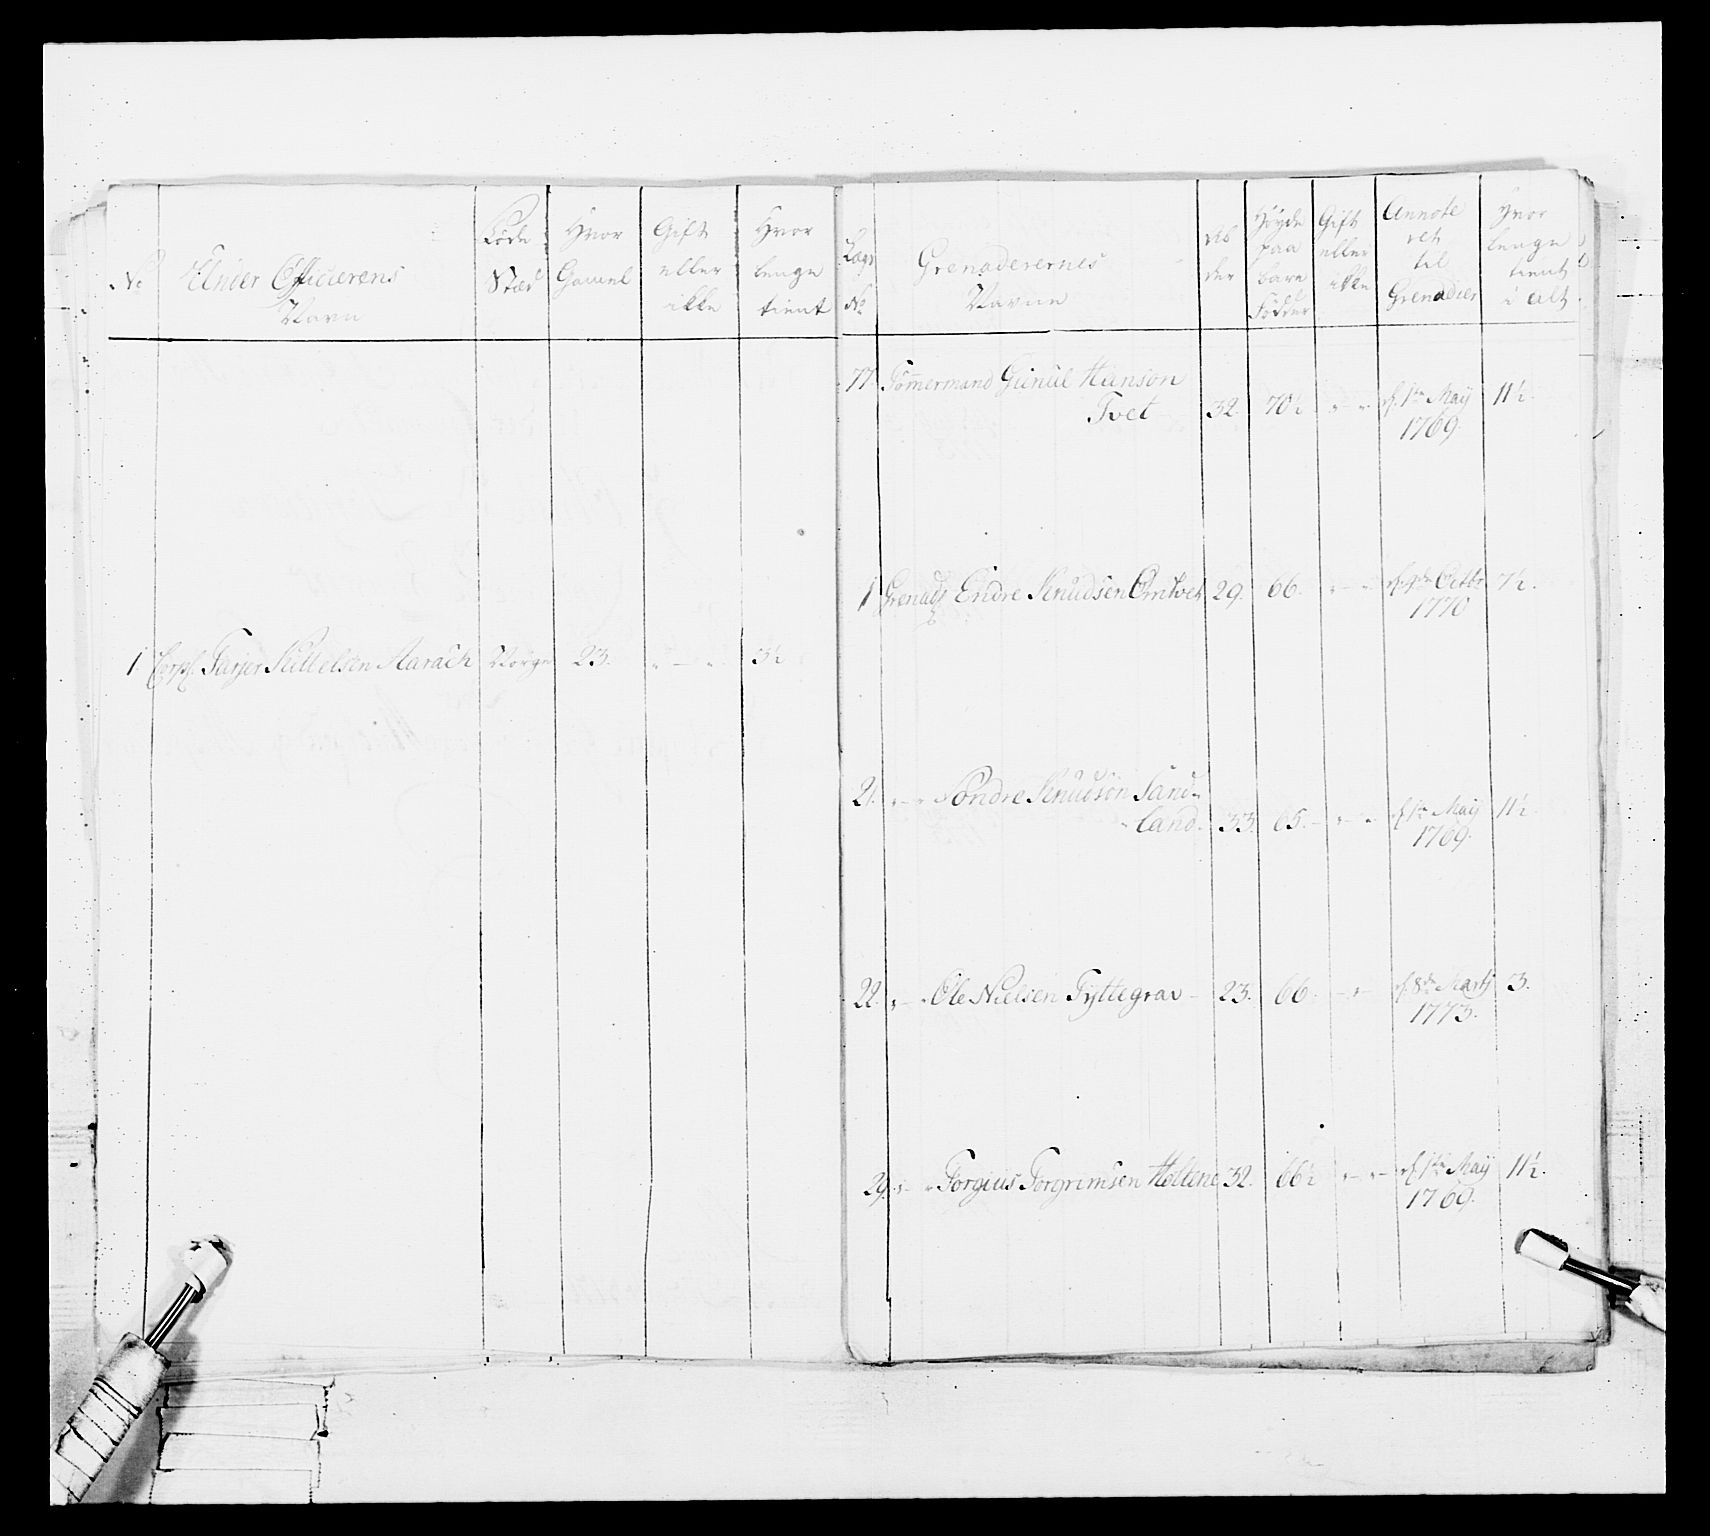 No
Under Officierens
Navn
Føde
Stæd
Hvor
Gamel
Gift
eller
ikke
Hvor
lenge
tient
1 Corpl. Tarjer Kittelsen Aarach Norge 23. " — " 3½
Lægs
No
Grenaderernes
Navne
Al
der
Høyde
paa
bare
Fødder
Gift
eller
ikke
Annote
ret
til
Grenadier
Hvor
lenge
tient
i alt
77. Tømmermand Gunul Hanson
Tvet 32. 70½ " — " d. 1te Maij 11½.
1769.
1 Grenad: Endre Knudsen Omtvet 29. 66. " — " Octbr 7½.
1770
21. " — " Søndre Knudson Sand-
land. 33. 65. " — " d. 1te Maij 11½.
1769.
22. " — " Ole Nielsen Tyttegrav — 23. 66. — " — d. 8de Martj 3.
1773.
29. " — " Torgius Torgrimsen Holtene 32. 66½ " — " d. 1te Maij 11½.
1769.